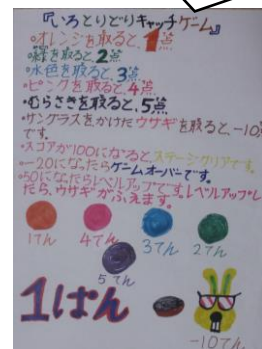 『いろとりどりキャッチゲーム』
・オレンジを取ると、1点
・緑を取ると、2点
・水色を取ると、3点
・ピンクを取ると、4点
・むらさきを取ると、5点
・サングラスをかけたウサギを取ると、-10点
です。
・スコアが100になると、ステージクリアです。
・-20になったらゲームオーバーです。
・50になったらレベルアップです。レベルアップし
たら、ウサギがふえます。
1てん 4てん 3てん 2てん
5てん
1はん
-10てん